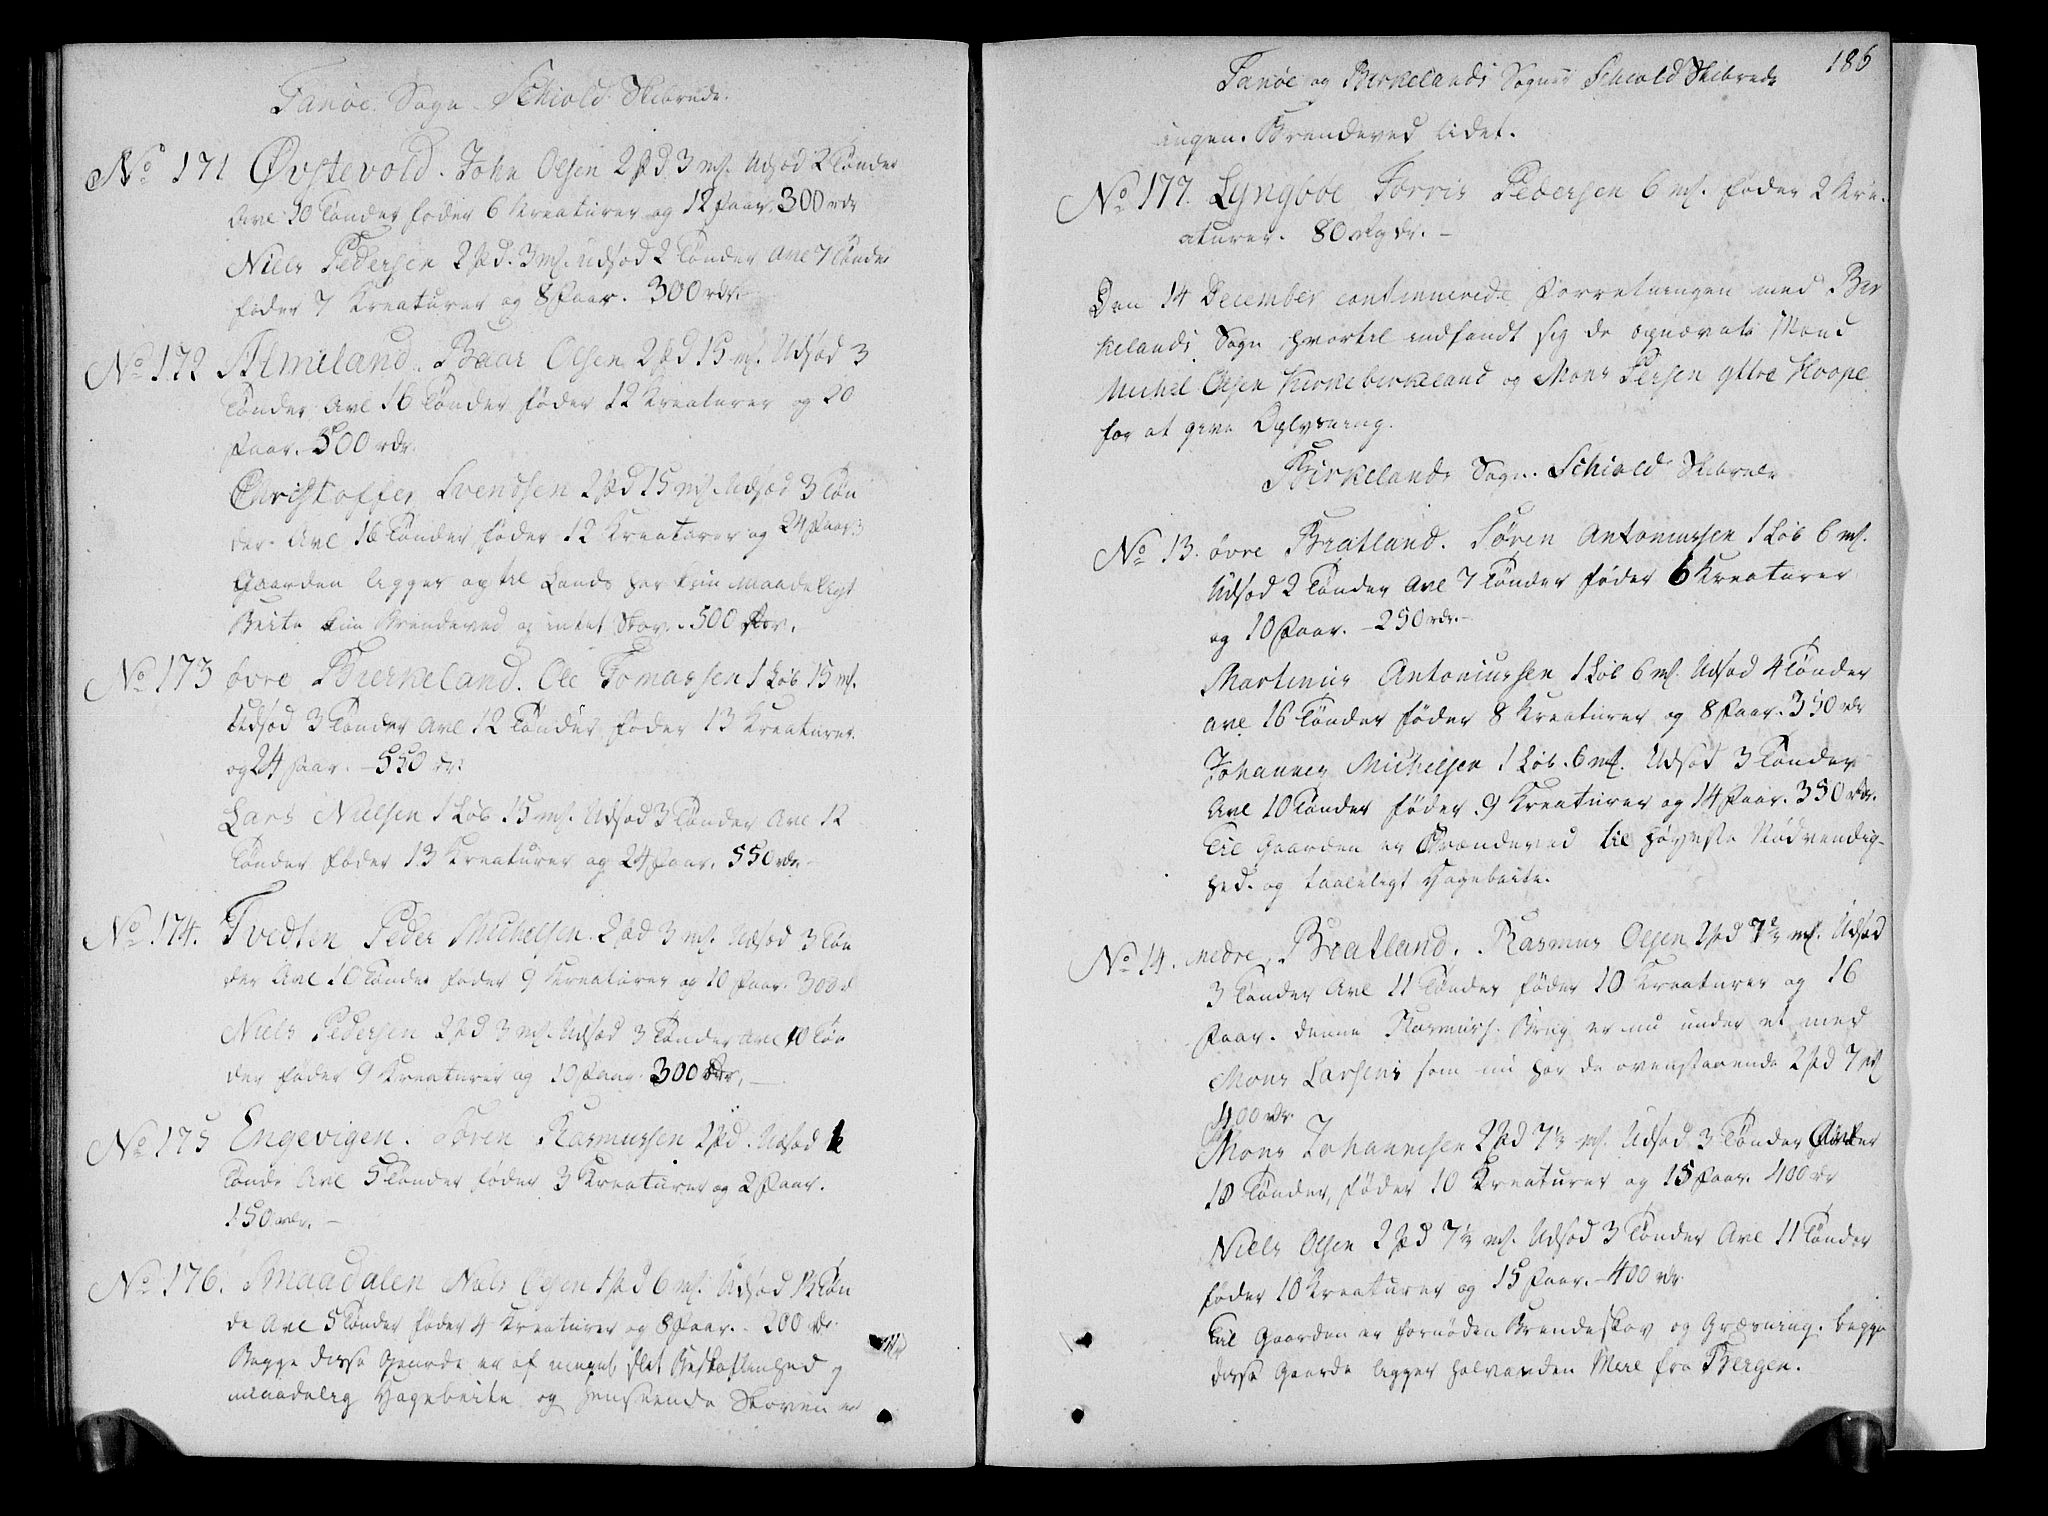 Fanøe Sogn Schiold Skibrede.
No 171 Øvstevold. John Olsen 2 pd 3 mk. Udsød 2 Tønder
Avl 10 Tønder foder 6 Kreaturer og 12 Faar. 300 rdr
Niels Pedersen 2 pd. 3 mk. Udsød 2 Tønder Avl 7 Tønder
foder 7 Kreaturer og 8 Faar. 300 rdr.
No 172 Almeland. Baar Olsen 2 pd 15 mk. Udsød 3
Tønder Avl 16 Tønder føder 12 Kreaturer og 20
Faar. 500 rdr.
Christoffer Svendsen 2 pd 15 mk. Udsæd 3 Tøn
der. Avl 16 Tønder føder 12 Kreaturer og 24 Faar
Gaarden ligger op til Lands har kun maadeligt
Beite kun Brendeved og intet Skov. 500 rdr.
No 173 øvre Bierkeland. Ole Tomassen 1 Løb 15 mk.
Udsød 3 Tønder Avl 12 Tønder føder 13 Kreaturer
og 24 Faar. 550 dr.
Lars Nielsen 1 Løb. 15 mk. Udsød 3 Tønder Avl 12
Tønder føder 13 Kreaturer og 24 Faar. 550 rdr
No 174. Tvedten Peder Michelsen. 2 pd 3 mk. Udsød 3 Tøn
der Avl 10 Tønder foder 9 Kreaturer og 10 Faar. 300 d
Niels Pedersen 2 pd 3 mk. Udsød 3 Tønder Avl 10 Tøn
der føder 9 Kreaturer og 10 Faar. 300 rdr.
No 175 Engevigen. Søren Rasmussen 2 pd. Udsød 1
Tønde Avl 5 Tønder føder 3 Kreaturer og 2 Faar.
150 rdr.
No 176. Smaadalen Niels Olsen 1 pd 6 mk. Udsød 1½ Tøn
de Avl 5 Tønder føder 4 Kreaturer og 8 Faar. 200 rdr.
Begge disse Gaarde er af meget slet Beskaffenhed og
maadelig Hagebeite og henseende Skoven er
186
Fanøe og Birkelands Sogne Schiold Skibrede
ingen. Brendeved lidet.
No 177. Lyngboe Torris Pedersen 6 mk. foder 2 Kre-
aturer. 80 Rgdr.
Den 14 December continuerede Forretningen med Bir
kelands Sogn, hvortil indfandt sig de opnævnte Mænd
Michel Olsen Kirkebirkeland og Mons Persen yttre Hoope
for at give Oplysning.
Birkelands Sogn. Schiold Skibrede
No 13. øvre Bratland. Søren Antoniussen 1 Løb 6 mk.
Udsød 2 Tønder Avl 7 Tønder føder 6 Kreaturer
og 10 Faar. 250 rdr.
Martinus Antoniussen 1 Løb 6 mk. Udsød 4 Tønder
Avl 16 Tønder føder 8 Kreaturer og 8 Faar. 350 rdr
Johannes Michelsen 1 Løb. 6 mk. Udsød 3 Tønder
Avl 10 Tønder føder 9 Kreaturer og 14 Faar. 350 rdr.
Til Gaarden er Brændeved til høyeste Nødvendig-
hed. og taaleligt Hagebeite.
No 14. nedre Bratland. Rasmus Olsen 2 pd 7½ mk. Udsød
3 Tønder Avl 11 Tønder føder 10 Kreaturer og 16
Faar. denne Rasmuss. Brug er nu under et med
Mons Larsens som nu har de ovenstaaende 2 pd 7 mk
400 rdr.
Mons Johannesen 2 pd 7½ mk. Udsød 3 Tønder
10 Tønder, føder 10 Kreaturer og 15 Faar. 400 rdr
Niels Olsen 2 pd 7½ mk. Udsød 3 Tønder Avl 11 Tønder
føder 10 Kreaturer og 15 Faar. 400 rdr.
Til Gaarden er fornøden Brendeskov og Græsning. begge
disse Gaarde ligger halvanden Miil fra Bergen.